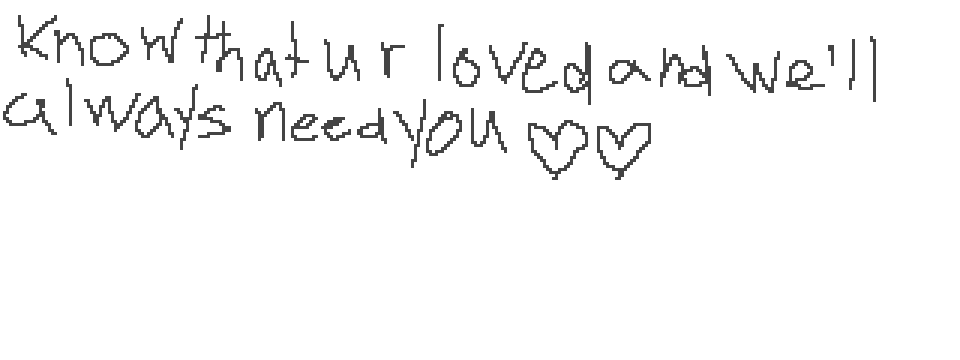 Know that ur loved and we'll
always need you ♡♡